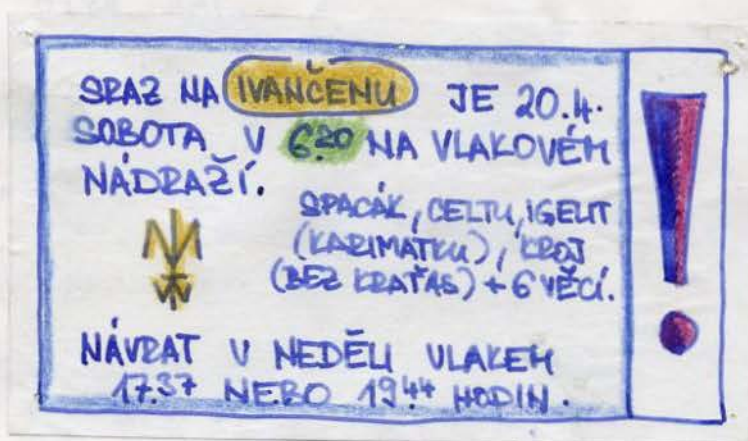 SRAZ NA IVANČENU JE 20.4.
SOBOTA V 6²⁰ NA VLAKOVÉM
NÁDRAŽÍ.
SPACÁK, CELTU, IGELIT
(KARIMATKU), KROJ
(BEZ KRAŤAS) + 6 VĚCÍ.
NÁVRAT V NEDĚLI VLAKEM
17.³⁷ NEBO 19⁴⁴ HODIN.
!